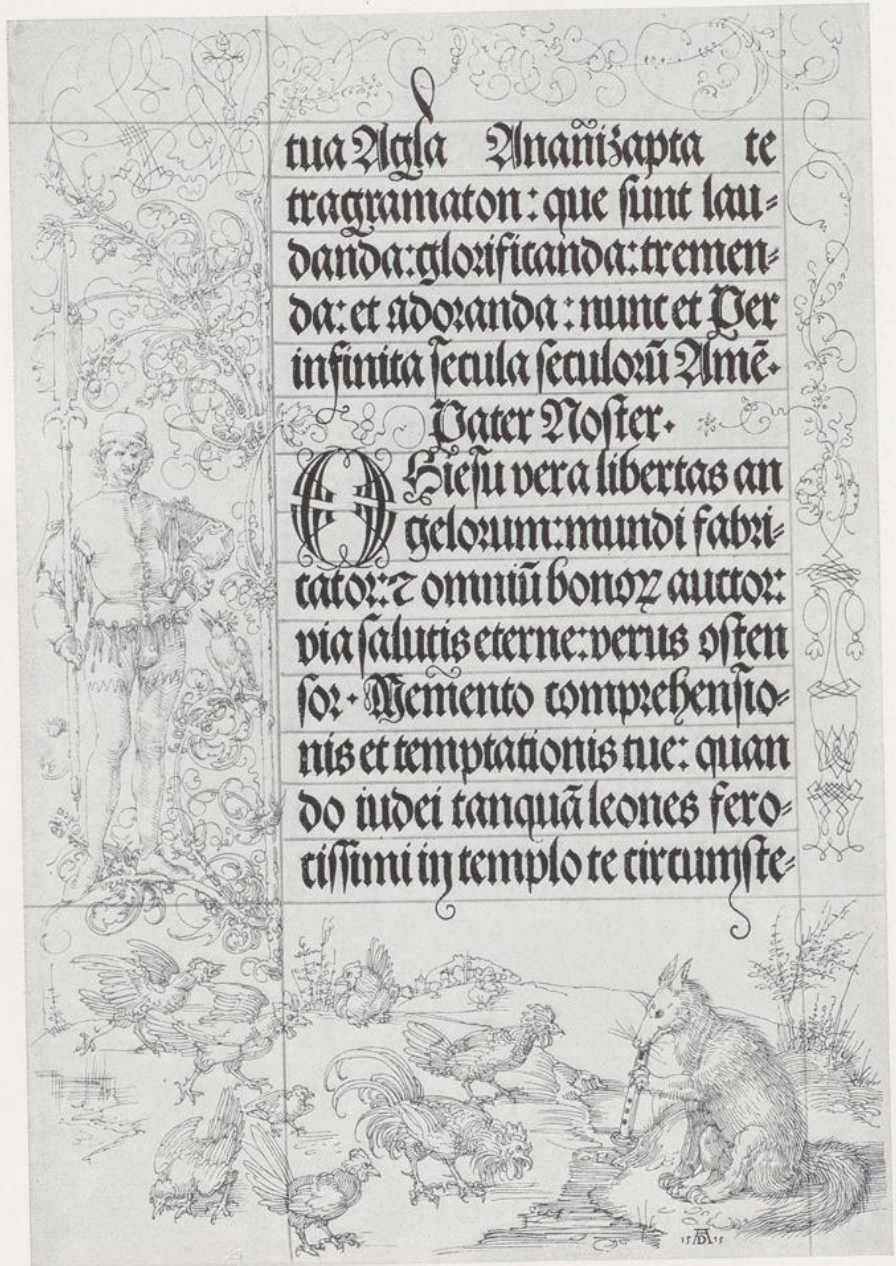 tua Agla Anañizapta te
tragramaton: que sunt lau-
danda: glorificanda: tremen-
da: et adoranda: nunc et Per
infinita secula seculorũ Amẽ.
Pater Noster.
O Hiesu vera libertas an
gelorum: mundi fabri-
cator: ⁊ omniũ bonoꝝ auctor:
via salutis eterne: verus osten
sor. Memento comprehensio-
nis et temptationis tue: quan
do iudei tanquã leones fero-
cissimi in templo te circumste-
15 AD 15